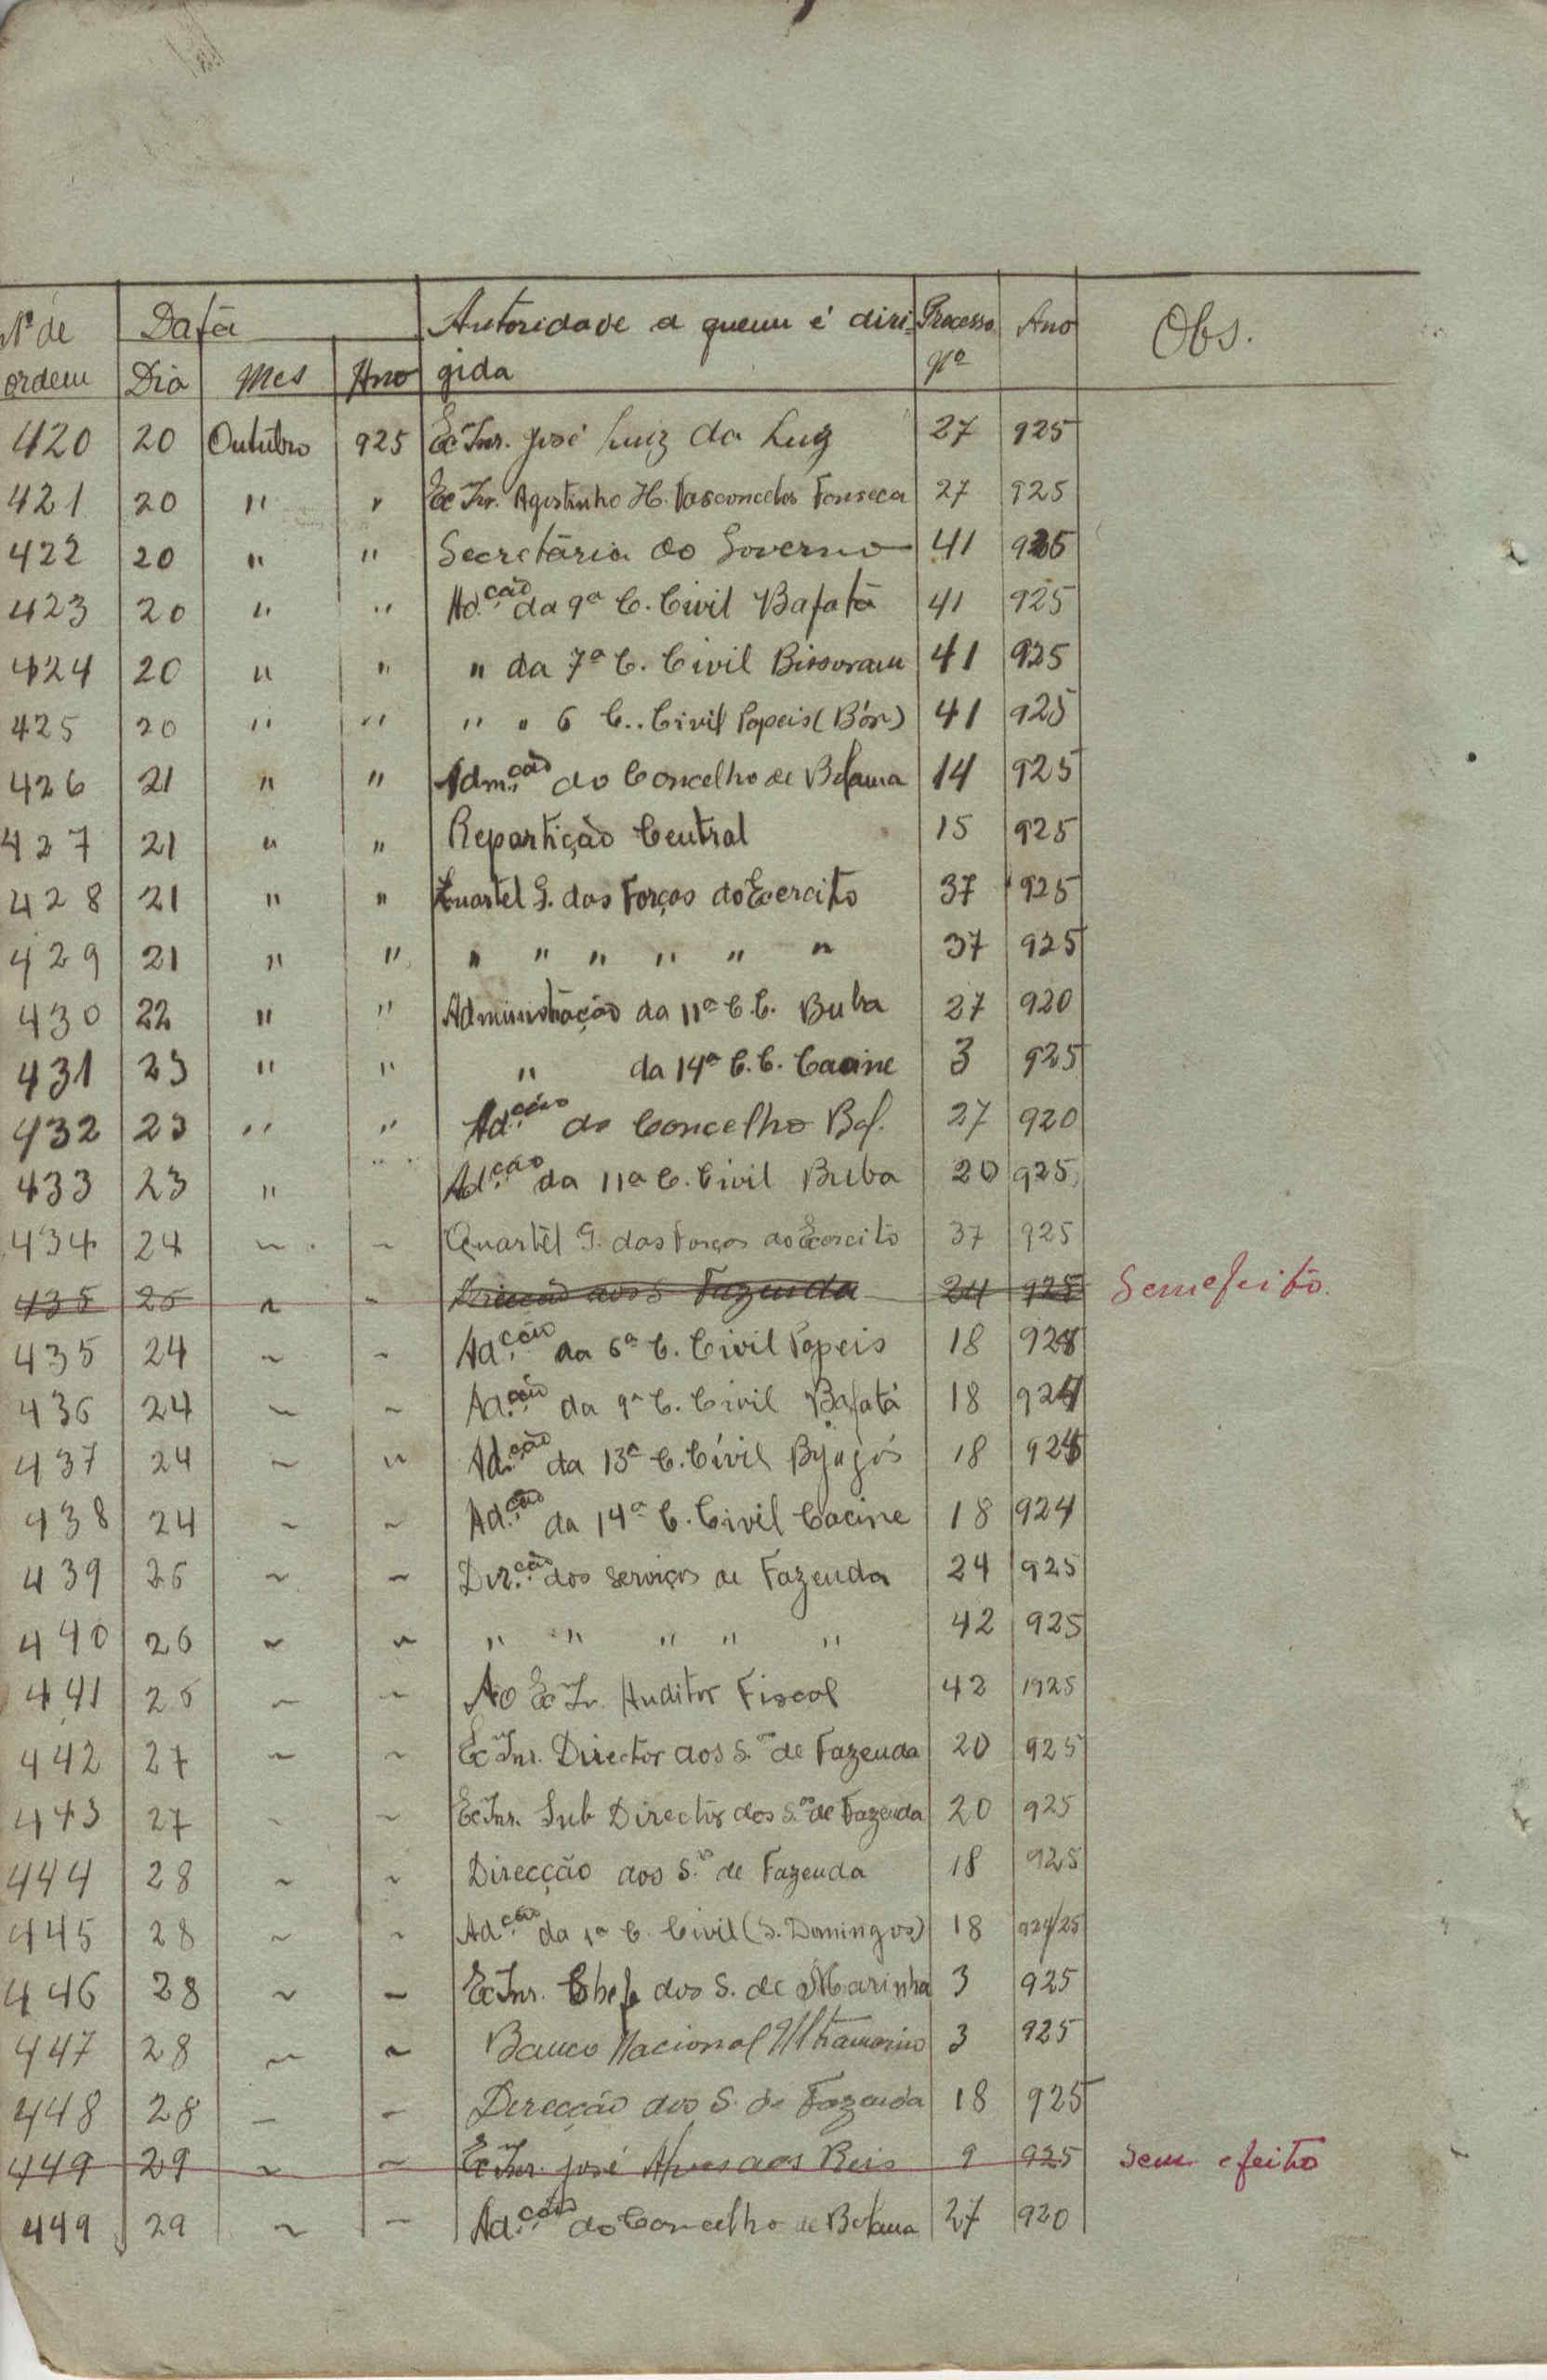 Nº de Data Autoridade a quem é diri- Processo Ano Obs.
ordem Dia Mes Ano gida Nº
420 20 Outubro 925 Ex.mo Snr. José Luiz da Luz 27 925
421 20 " " Ex.mo Snr. Agostinho H. Vasconcelos Fonseca 27 925
422 20 " " Secretária do Governo 41 925
423 20 " " Ad.ção da 9ª C. Civil Bafatá 41 925
424 20 " " " da 7ª C. Civil Bissoram 41 925
425 20 " " " " 6 C. Civil Papeis (Bór) 41 925
426 21 " " Adm.ção do Concelho de Bolama 14 925
427 21 " " Repartição Central 15 925
428 21 " " Quartel G. das Forças do Exercito 37 925
429 21 " " " " " " " " 37 925
430 22 " " Administração da 11ª C.C. Buba 27 920
431 23 " " " da 14ª C.C. Cacine 3 925
432 23 " " Ad.ção do Concelho Bol. 27 920
433 23 " " Ad.ção da 11ª C. Civil Buba 20 925
434 24 ~ ~ Quartel G. das Forças do Exercito 37 925
435 25 ~ ~ Direcção dos S Fazenda 24 925 Sem efeito.
435 24 ~ ~ Ad.ção da 6ª C. Civil Papeis 18 924
436 24 ~ ~ Ad.ção da 9ª C. Civil Bafatá 18 924
437 24 ~ " Ad.ção da 13ª C. Civil Bijagós 18 924
438 24 ~ ~ Ad.ção da 14ª C. Civil Cacine 18 924
439 26 ~ ~ Dir.ção dos Serviços de Fazenda 24 925
440 26 ~ ~ " " " " " 42 925
441 26 ~ ~ Ao Ex.mo Sr. Auditor Fiscal 42 1925
442 27 ~ ~ Ex.mo Snr. Director dos S.os de Fazenda 20 925
443 27 ~ ~ Ex.mo Snr. Sub Director dos S.os de Fazenda 20 925
444 28 ~ ~ Direcção dos S.os de Fazenda 18 925
445 28 ~ ~ Ad.ção da 1ª C. Civil (S. Domingos) 18 924/25
446 28 ~ ~ Ex.mo Snr. Chefe dos S. de Marinha 3 925
447 28 ~ ~ Banco Nacional Ultramarino 3 925
448 28 ~ ~ Direcção dos S. de Fazenda 18 925
449 29 ~ ~ Ex.mo Snr. José Alves dos Reis 9 925 Sem efeito
449 29 ~ ~ Ad.ção do Concelho de Bolama 27 920